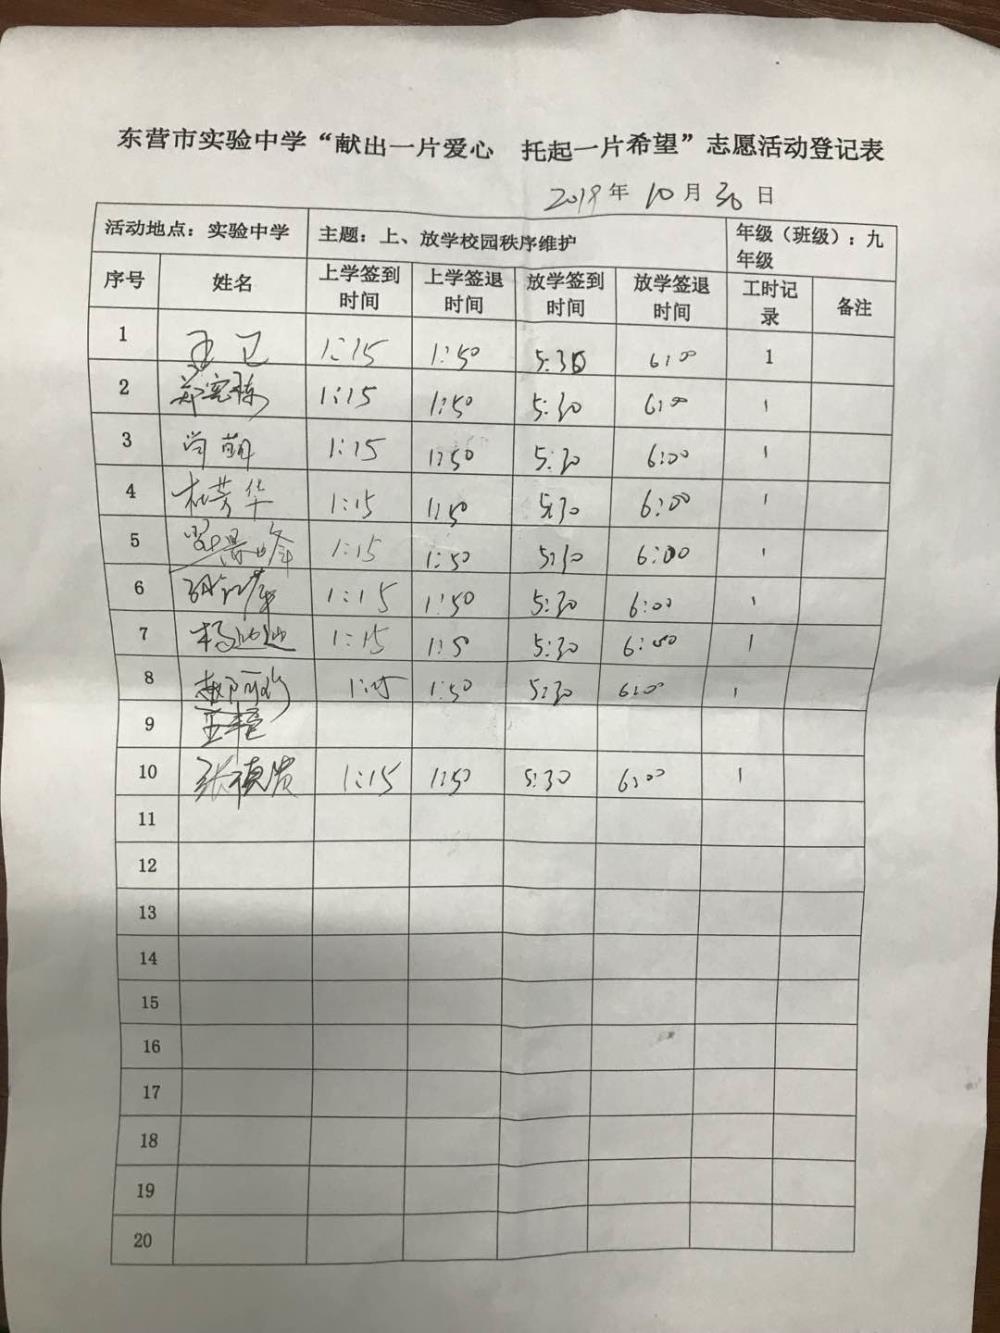 东营市实验中学“献出一片爱心 托起一片希望”志愿活动登记表
2019年10月30日
活动地点：实验中学 主题：上、放学校园秩序维护 年级（班级）：九年级
序号 姓名 上学签到时间 上学签退时间 放学签到时间 放学签退时间 工时记录 备注
1 王卫 1:15 1:50 5:30 6:00 1
2 1:15 1:50 5:30 6:00 1
3 尚萌 1:15 1:50 5:30 6:00 1
4 杜芳华 1:15 1:50 5:30 6:00 1
5 1:15 1:50 5:30 6:00 1
6 1:15 1:50 5:30 6:00 1
7 1:15 1:50 5:30 6:00 1
8 1:15 1:50 5:30 6:00 1
9
10 1:15 1:50 5:30 6:00 1
11
12
13
14
15
16
17
18
19
20